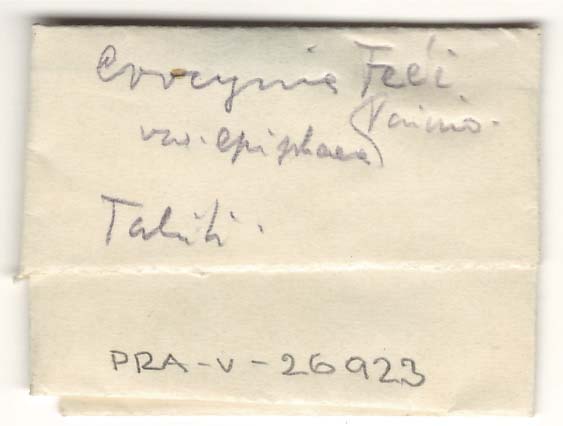 Crocynia Feei
Vainio.
var. epiphaea
Tahiti.
PRA-V-26923